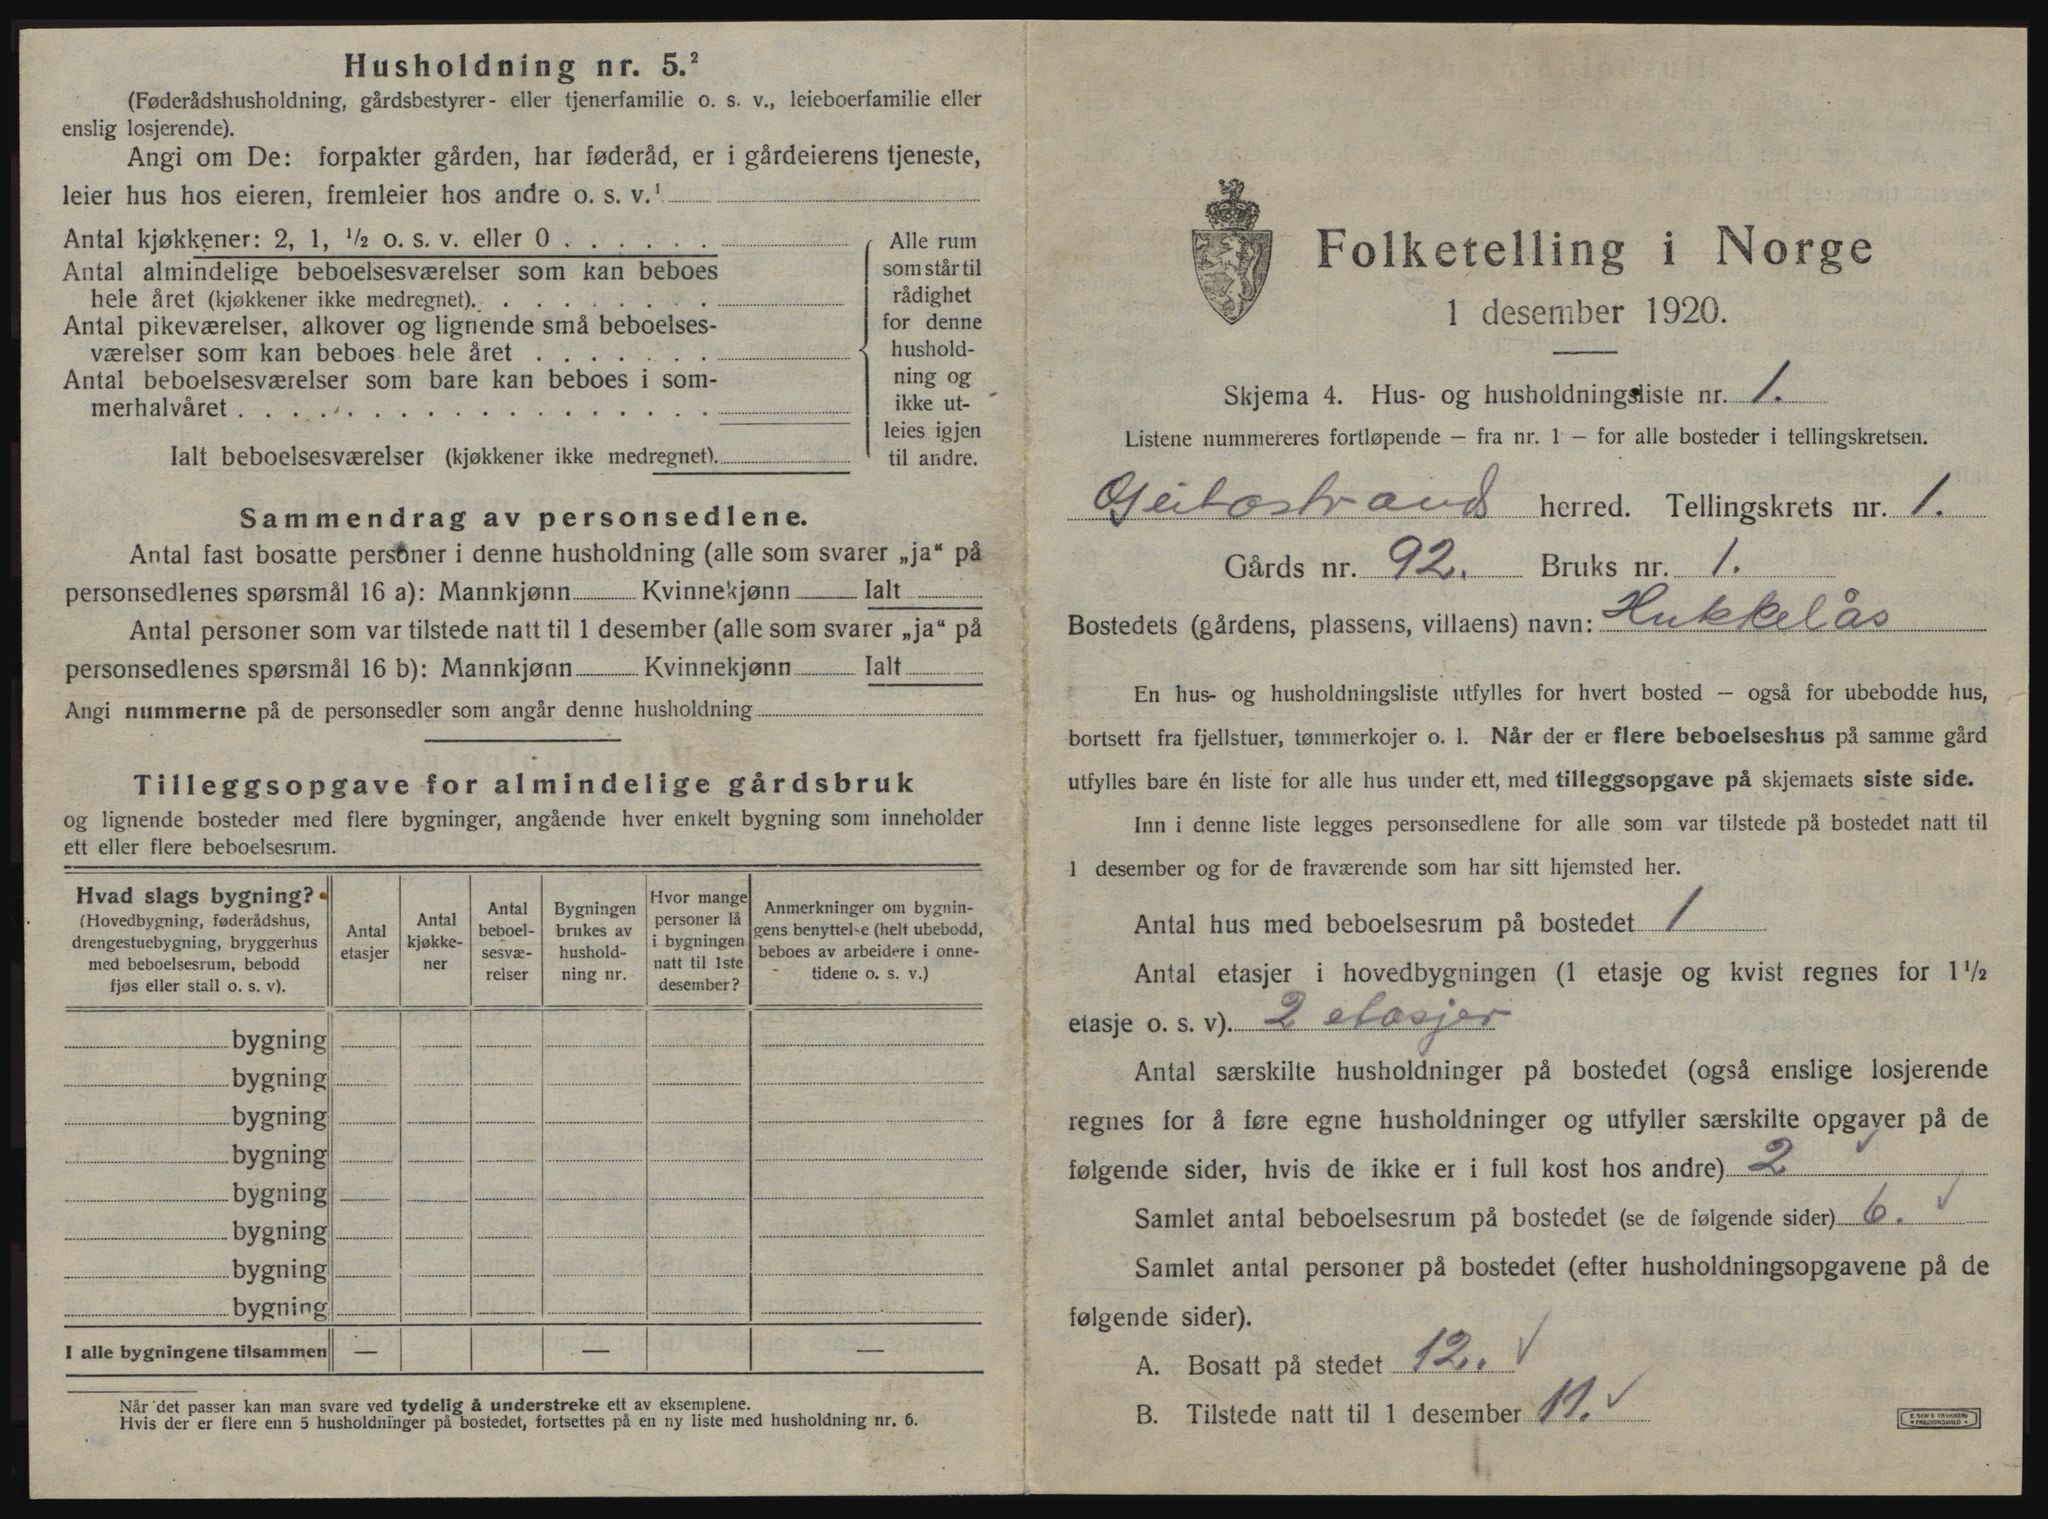 Husholdning nr. 5.²
(Føderådshusholdning, gårdsbestyrer- eller tjenerfamilie o. s. v., leieboerfamilie eller
enslig losjerende).
Angi om De: forpakter gården, har føderåd, er i gårdeierens tjeneste,
leier hus hos eieren, fremleier hos andre o. s. v.¹
Antal kjøkkener: 2, 1, ½ o. s. v. eller 0 . . . . . .
Antal almindelige beboelsesværelser som kan beboes
hele året (kjøkkener ikke medregnet). . . . . . . . .
Antal pikeværelser, alkover og lignende små beboelses-
værelser som kan beboes hele året . . . . . . .
Antal beboelsesværelser som bare kan beboes i som-
merhalvåret . . . . . . . . . . . . . . . . . .
Ialt beboelsesværelser (kjøkkener ikke medregnet).
Alle rum
som står til
rådighet
for denne
hushold-
ning og
ikke ut-
leies igjen
til andre.
Sammendrag av personsedlene.
Antal fast bosatte personer i denne husholdning (alle som svarer „ja“ på
personsedlenes spørsmål 16 a): Mannkjønn Kvinnekjønn Ialt
Antal personer som var tilstede natt til 1 desember (alle som svarer „ja“ på
personsedlenes spørsmål 16 b): Mannkjønn Kvinnekjønn Ialt
Angi nummerne på de personsedler som angår denne husholdning
Tilleggsopgave for almindelige gårdsbruk
og lignende bosteder med flere bygninger, angående hver enkelt bygning som inneholder
ett eller flere beboelsesrum.
Hvad slags bygning?
(Hovedbygning, føderådshus,
drengestuebygning, bryggerhus
med beboelsesrum, bebodd
fjøs eller stall o. s. v).
Antal
etasjer
Antal
kjøkke-
ner
Antal
beboel-
sesvæ-
relser
Bygningen
brukes av
hushold-
ning nr.
Hvor mange
personer lå
i bygningen
natt til 1ste
desember?
Anmerkninger om bygnin-
gens benyttelse (helt ubebodd,
beboes av arbeidere i onne-
tidene o. s. v.)
bygning
bygning
bygning
bygning
bygning
bygning
bygning
bygning
I alle bygningene tilsammen — — —
Når det passer kan man svare ved tydelig å understreke ett av eksemplene.
Hvis der er flere enn 5 husholdninger på bostedet, fortsettes på en ny liste med husholdning nr. 6.
Folketelling i Norge
1 desember 1920.
Skjema 4. Hus- og husholdningsliste nr. 1.
Listene nummereres fortløpende – fra nr. 1 – for alle bosteder i tellingskretsen.
Geitastrand herred. Tellingskrets nr. 1.
Gårds nr. 92. Bruks nr. 1.
Bostedets (gårdens, plassens, villaens) navn: Hukkelås
En hus- og husholdningsliste utfylles for hvert bosted – også for ubebodde hus,
bortsett fra fjellstuer, tømmerkojer o. l. Når der er flere beboelseshus på samme gård
utfylles bare én liste for alle hus under ett, med tilleggsopgave på skjemaets siste side.
Inn i denne liste legges personsedlene for alle som var tilstede på bostedet natt til
1 desember og for de fraværende som har sitt hjemsted her.
Antal hus med beboelsesrum på bostedet 1
Antal etasjer i hovedbygningen (1 etasje og kvist regnes for 1½
etasje o. s. v). 2 etasjer
Antal særskilte husholdninger på bostedet (også enslige losjerende
regnes for å føre egne husholdninger og utfyller særskilte opgaver på de
følgende sider, hvis de ikke er i full kost hos andre) 2 ✓
Samlet antal beboelsesrum på bostedet (se de følgende sider) 6. ✓
Samlet antal personer på bostedet (efter husholdningsopgavene på de
følgende sider).
A. Bosatt på stedet 12. ✓
B. Tilstede natt til 1 desember 11. ✓